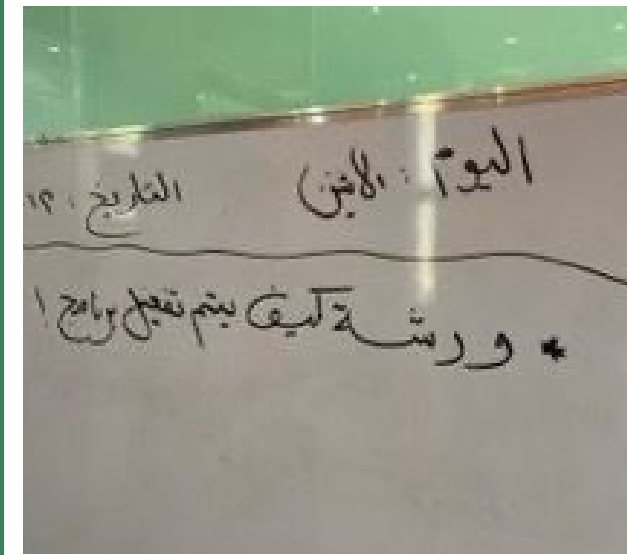 اليوم : الاثنين التاريخ : ١٢
* ورشة كيف يتم تفعيل برنامج ا